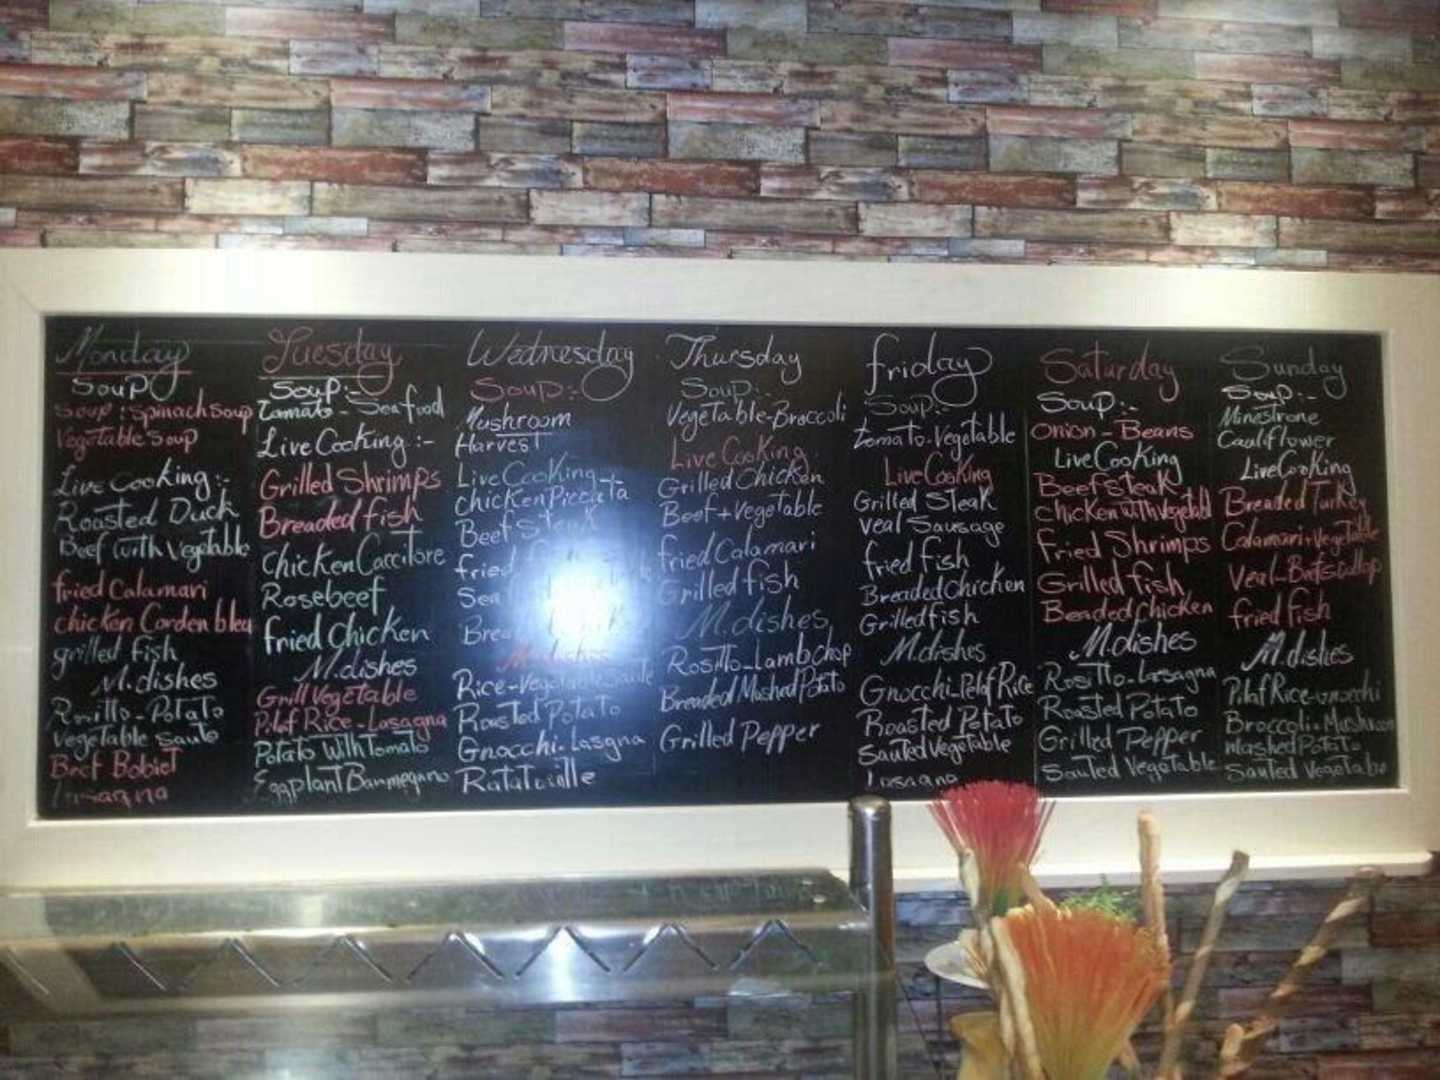 Monday
Soup
Soup : Spinach Soup
Vegetable Soup
Live Cooking :-
Roasted Duck
Beef with Vegetable
fried Calamari
chicken Corden bleu
grilled fish
M.dishes
Rositto - Potato
Vegetable Saute
Lasagna
Tuesday
Soup :-
Tomato - Sea food
Live Cooking :-
Grilled Shrimps
Breaded fish
Chicken Caccitore
Rosebeef
fried Chicken
M.dishes
Grill Vegetable
Pilaf Rice - Lasagna
Potato With Tomato
Eggplant Barmegano
Wednesday
Soup :-
Mushroom
Harvest
Live Cooking :-
Chicken Piccata
Beef Steak
fried
Sea
Brea
M.dishes
Rice - Vegetable Saute
Roasted Potato
Gnocchi - Lasgna
Ratatouille
Thursday
Soup :-
Vegetable - Broccoli
Live Cooking
Grilled Chicken
Beef + Vegetable
fried Calamari
Grilled fish
M.dishes
Rositto - Lamb Chop
Breaded Mashed Potato
Grilled Pepper
friday
Soup :-
Tomato - Vegetable
Live Cooking
Grilled Steak
Veal Sausage
fried fish
Breaded Chicken
Grilled fish
M.dishes
Gnocchi - Pilaf Rice
Roasted Potato
Sauted Vegetable
Lasagna
Saturday
Soup :-
Onion - Beans
Live Cooking
Beef Steak
Chicken with Vegetabl
Fried Shrimps
Grilled fish
Beaded Chicken
M.dishes
Rositto - Lasagna
Roasted Potato
Grilled Pepper
Sauted Vegetable
Sunday
Soup :-
Minestrone
Cauliflower
Live Cooking
Breaded Turkey
Calamari + Vegetable
Veal - Beef Scallop
fried fish
M.dishes
Pilaf Rice - Gnocchi
Broccoli - Mushroom
Mashed Potato
Sauted Vegetable